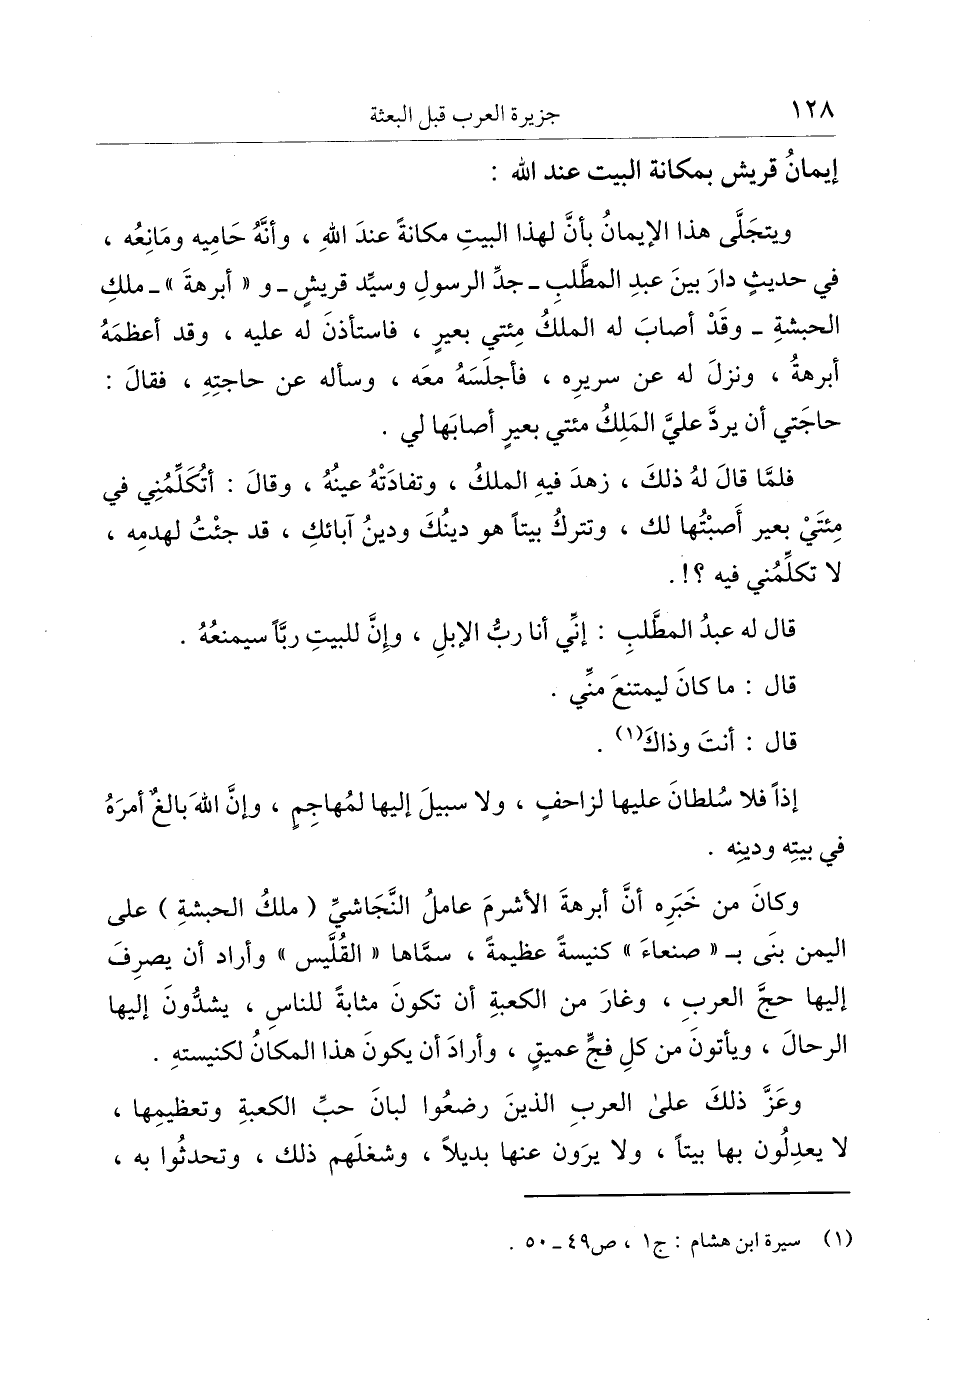 ١٢٨
جزيرة العرب قبل البعثة
إيمانُ قريش بمكانة البيت عند الله :
ويتجَلَّى هذا الإيمانُ بأنَّ لهذا البيتِ مكانةً عندَ اللهِ ، وأنَّهُ حَامِيه ومَانِعُه ،
في حديثٍ دارَ بينَ عبدِ المطَّلبِ ـ جدِّ الرسولِ وسيِّد قريشٍ ـ و « أبرهةَ » ـ ملكِ
الحبشةِ ـ وقَدْ أصابَ له الملكُ مِئتي بعيرٍ ، فاستأذنَ له عليه ، وقد أعظمَهُ
أبرهةُ ، ونزلَ له عن سريرِه ، فأجلَسَهُ معَه ، وسأله عن حاجتِهِ ، فقالَ :
حاجَتي أن يردَّ عليَّ المَلِكُ مئتي بعيرٍ أصابَها لي .
فلمَّا قالَ لهُ ذلكَ ، زهدَ فيهِ الملكُ ، وتفادَتْهُ عينُهُ ، وقالَ : أتُكَلِّمُنِي في
مِئتَيْ بعير أَصبْتُها لك ، وتتركُ بيتاً هو دينُكَ ودينُ آبائكِ ، قد جئْتُ لهدمِه ،
لا تكلِّمُني فيه ؟! .
قال له عبدُ المطَّلبِ : إنِّي أنا ربُّ الإبلِ ، وإِنَّ للبيتِ ربَّاً سيمنعُهُ .
قال : ما كانَ ليمتنعَ منِّي .
قال : أنتَ وذاكَ(١) .
إذاً فلا سُلطانَ عليها لزاحفٍ ، ولا سبيلَ إليها لمُهاجِمٍ ، وإنَّ اللهَ بالغٌ أمرَهُ
في بيتِه ودينِه .
وكانَ من خَبَرِه أنَّ أبرهةَ الأشرمَ عاملُ النَّجَاشيِّ ( ملكُ الحبشةِ ) على
اليمن بنَى بـ « صنعاءَ » كنيسةً عظيمةً ، سمَّاها « القُلَّيس » وأراد أن يصرِفَ
إليها حجَّ العربِ ، وغارَ من الكعبةِ أن تكونَ مثابةً للناسِ ، يشدُّونَ إليها
الرحالَ ، ويأتونَ من كلِ فجٍّ عميقٍ ، وأرادَ أن يكونَ هذا المكانُ لكنيستهِ .
وعَزَّ ذلكَ علىٰ العربِ الذينَ رضعُوا لبانَ حبِّ الكعبةِ وتعظيمِها ،
لا يعدِلُون بها بيتاً ، ولا يرَون عنها بديلاً ، وشغلَهم ذلك ، وتحدثُوا به ،
(١) سيرة ابن هشام : ج١ ، ص٤٩ـ٥٠ .